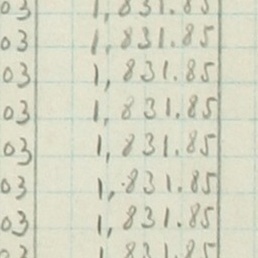 03 1,831.85
03 1,831.85
03 1,831.85
03 1,831.85
03 1,831.85
03 1,831.85
03 1,831.85
03 1,831.85